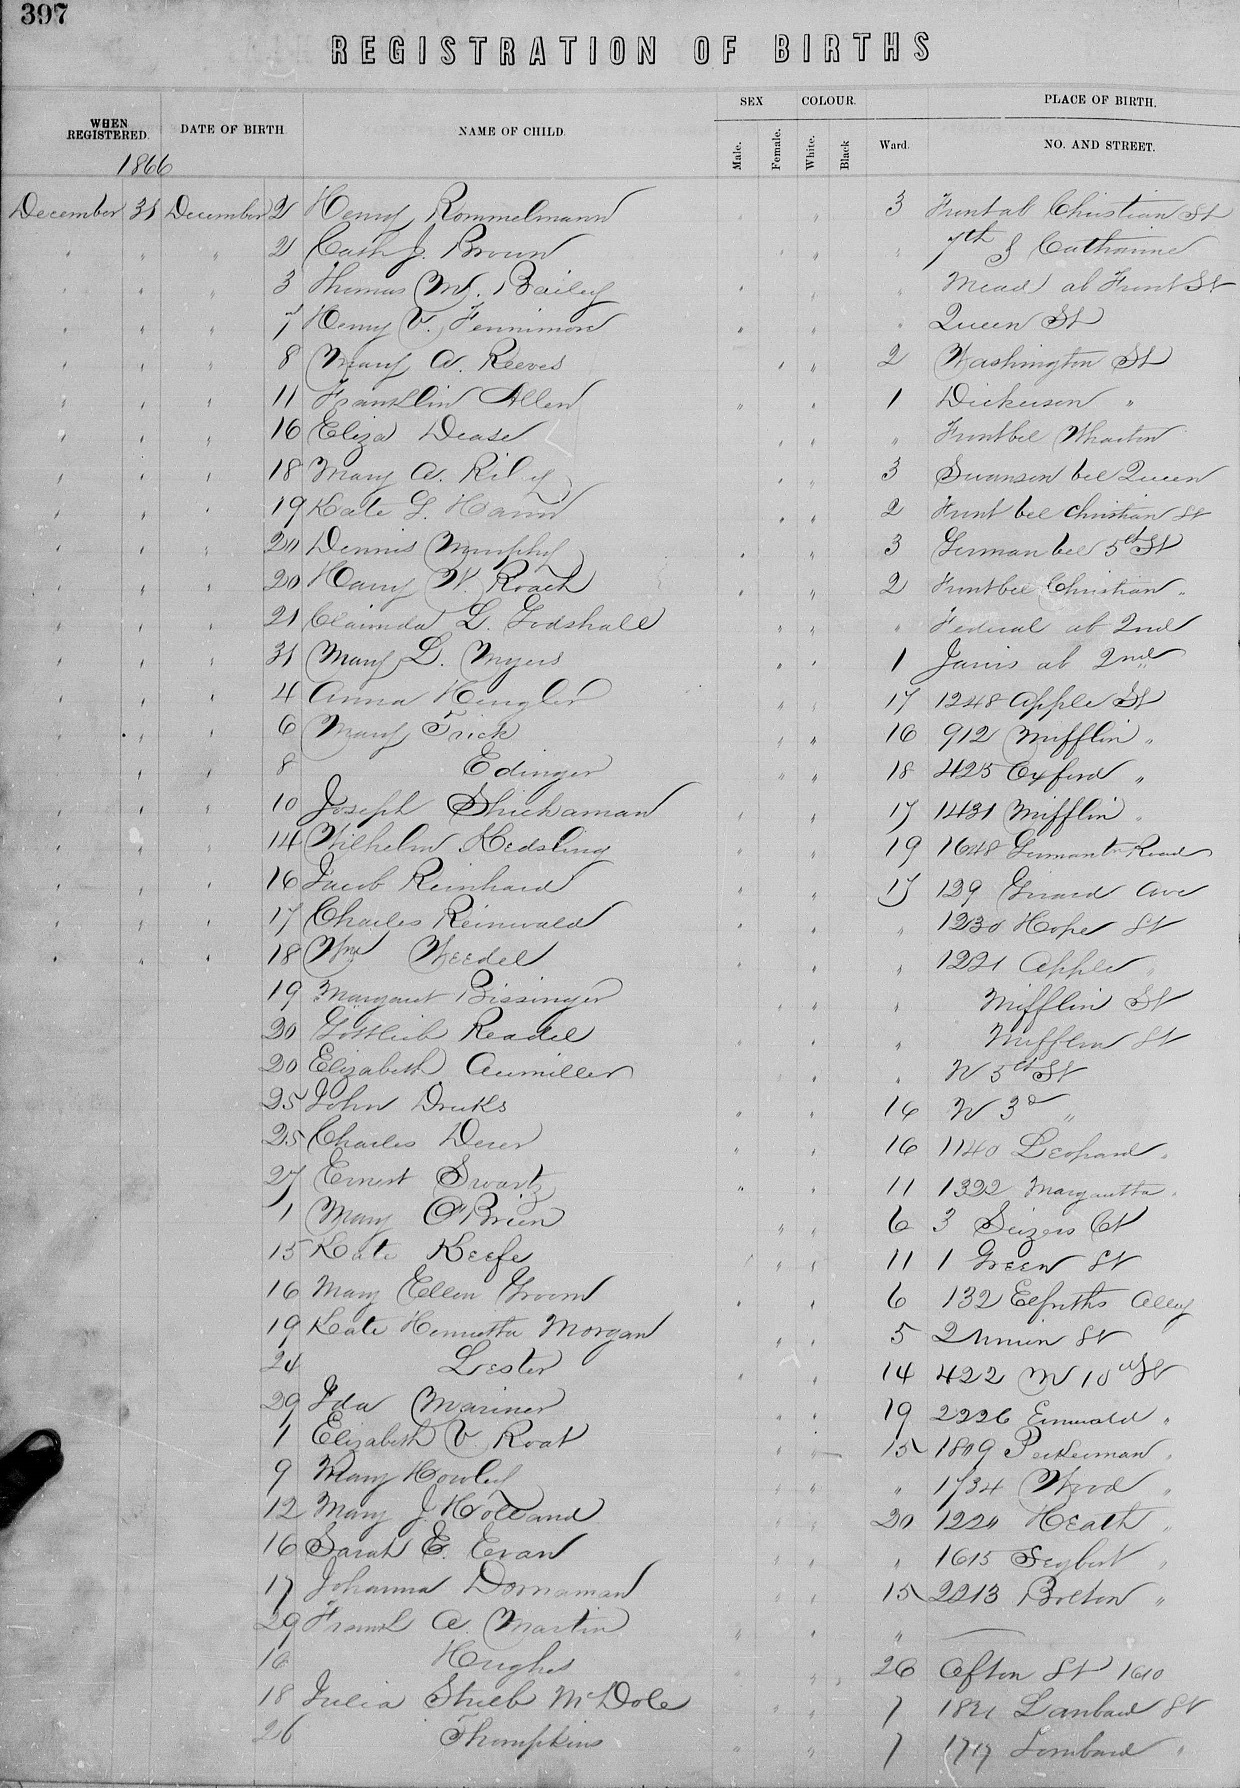 397
REGISTRATION OF BIRTHS
WHEN REGISTERED. DATE OF BIRTH NAME OF CHILD. SEX COLOUR. PLACE OF BIRTH.
Male. Female. White. Black Ward. NO. AND STREET.
1866
December 31 December 2 Henry Rommelmann 3 Front ab Christian St
" " " 2 Cath J. Brown " 7th & Catharine
" " " 3 Thomas M. Bailey " Mead ab Front St
" " " 7 Henry V. Fennimore " Queen St
" " " 8 Mary A. Reeves 2 Washington St
" " " 11 Franklin Allen 1 Dickerson "
" " " 16 Eliza Dease " Front bel Wharton
" " " 18 Mary A. Riley 3 Swanson bel Queen
" " " 19 Kate G. Hann 2 Front bel Christian St
" " " 20 Dennis Murphy 3 German bel 5th St
" " " 20 Harry W. Roach 2 Front bel Christian "
" " " 21 Clarinda L. Godshall " Federal ab 2nd
" " " 31 Mary L. Myers 1 Jarvis ab 2nd
" " " 4 Anna Hengler 17 1248 Apple St
" " " 6 Mary Frick 16 912 Mifflin "
" " 8 Edinger 18 425 Oxford "
" " " 10 Joseph Shickaman 17 1431 Mifflin "
" " 14 Wilhelm Hedsling 19 1648 Germantn Road
" " " 16 Jacob Reinhard 17 129 Girard Ave
" " " 17 Charles Reinwald " 1230 Hope St
" " " 18 Wm Weedel " 1221 Apple "
19 Margaret Bissinger " Mifflin St
20 Gottlieb Readel " Mifflin St
20 Elizabeth Aumiller " N 5th St
25 John Druks 16 N 3d "
25 Charles Derer 16 1140 Leopard "
27 Ernest Swartz 11 1322 Margaretta "
1 Mary O'Brien 6 3 Court
15 Kate Keefe 11 1 Green St
16 Mary Ellen Groom 6 132 Elfriths Alley
19 Kate Henrietta Morgan 5 2 Union St
24 Lester 14 422 N 10th St
29 Ida Mariner 19 2226 Emerald "
1 Elizabeth V. Roat 15 1809 Peckerman "
9 Mary Howley " 1734 Wood "
12 Mary J. Holland 20 1220 Heath "
16 Sarah E. Evan " 1615 Seybert "
17 Johanna Dornaman 15 2213 Bolton "
29 Frank A. Martin "
16 Hughes 26 Afton St 1610
18 Julia Strieb McDole 7 1821 Lanbard St
26 Thompkins 7 1717 Lombard "